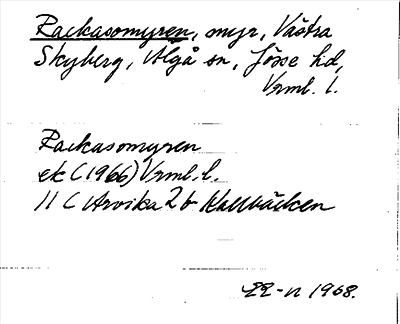 Rackasomyren, myr, Västra
Skyberg, Älgå sn, Jösse hd,
Vrml. l.
Rackasomyren
ek (1966) Vrml. l.
11 C Arvika 2 b
1968.